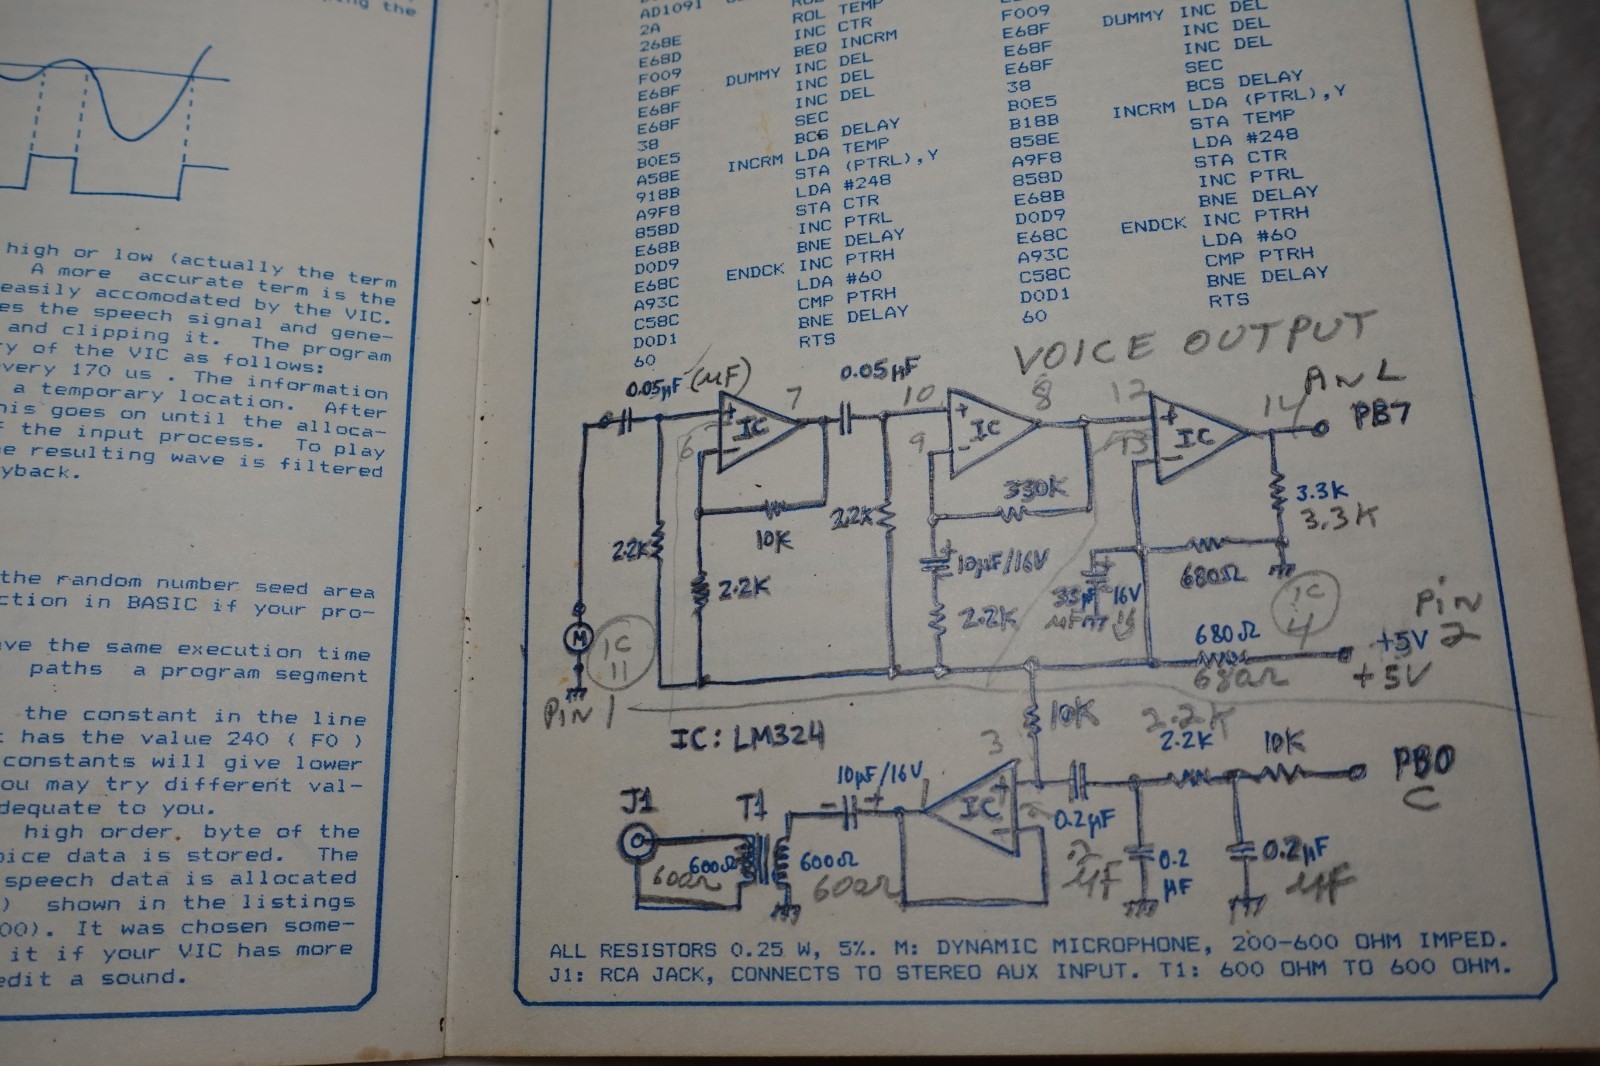 ping the
high or low (actually the term
A more accurate term is the
easily accomodated by the VIC.
es the speech signal and gene-
and clipping it. The program
ry of the VIC as follows:
very 170 us . The information
a temporary location. After
his goes on until the alloca-
f the input process. To play
e resulting wave is filtered
yback.
the random number seed area
ction in BASIC if your pro-
ave the same execution time
paths a program segment
the constant in the line
t has the value 240 ( F0 )
constants will give lower
ou may try different val-
dequate to you.
high order byte of the
oice data is stored. The
speech data is allocated
) shown in the listings
00). It was chosen some-
it if your VIC has more
edit a sound.
AD1091
2A ROL TEMP
268E INC CTR
E68D BEQ INCRM
F009 DUMMY INC DEL
E68F INC DEL
E68F INC DEL
E68F SEC
38 BCS DELAY
B0E5 INCRM LDA TEMP
A58E STA (PTRL),Y
918B LDA #248
A9F8 STA CTR
858D INC PTRL
E68B BNE DELAY
D0D9 ENDCK INC PTRH
E68C LDA #60
A93C CMP PTRH
C58C BNE DELAY
D0D1 RTS
60
F009 DUMMY INC DEL
E68F INC DEL
E68F INC DEL
E68F SEC
38 BCS DELAY
B0E5 INCRM LDA (PTRL),Y
B18B STA TEMP
858E LDA #248
A9F8 STA CTR
858D INC PTRL
E68B BNE DELAY
D0D9 ENDCK INC PTRH
E68C LDA #60
A93C CMP PTRH
C58C BNE DELAY
D0D1 RTS
60
VOICE OUTPUT
0.05µF (µF) 7 0.05µF 10 8 12 14 AN L
PB7
+ IC + IC + IC
6 - 9 - 13 -
330K 3.3K
3.3K
10K 2.2K
2.2K 10µF/16V 680Ω
2.2K 33µF 16V
µF
2.2K
M IC 11 680Ω IC 4 PiN 2
+5V
680Ω +5V
PiN 1
IC: LM324 10K 2.2K
3 2.2K 10K PB0
C
10µF/16V 1 + IC 2 -
J1 T1 - + 0.2µF
.2 µF
600Ω 600Ω 0.2 µF 0.2µF
600Ω 600Ω µF
ALL RESISTORS 0.25 W, 5%. M: DYNAMIC MICROPHONE, 200-600 OHM IMPED.
J1: RCA JACK, CONNECTS TO STEREO AUX INPUT. T1: 600 OHM TO 600 OHM.